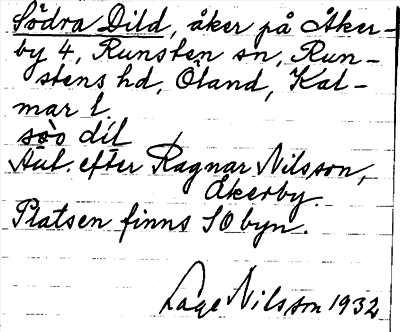 Södra Dild, åker på Åker-
by 4, Runsten sn, Run-
stens hd, Öland, Kal-
mar l.
sōo̊ dīl
Aul. efter Ragnar Nilsson,
Åkerby.
Platsen finns SO byn.
Lage Nilsson 1932